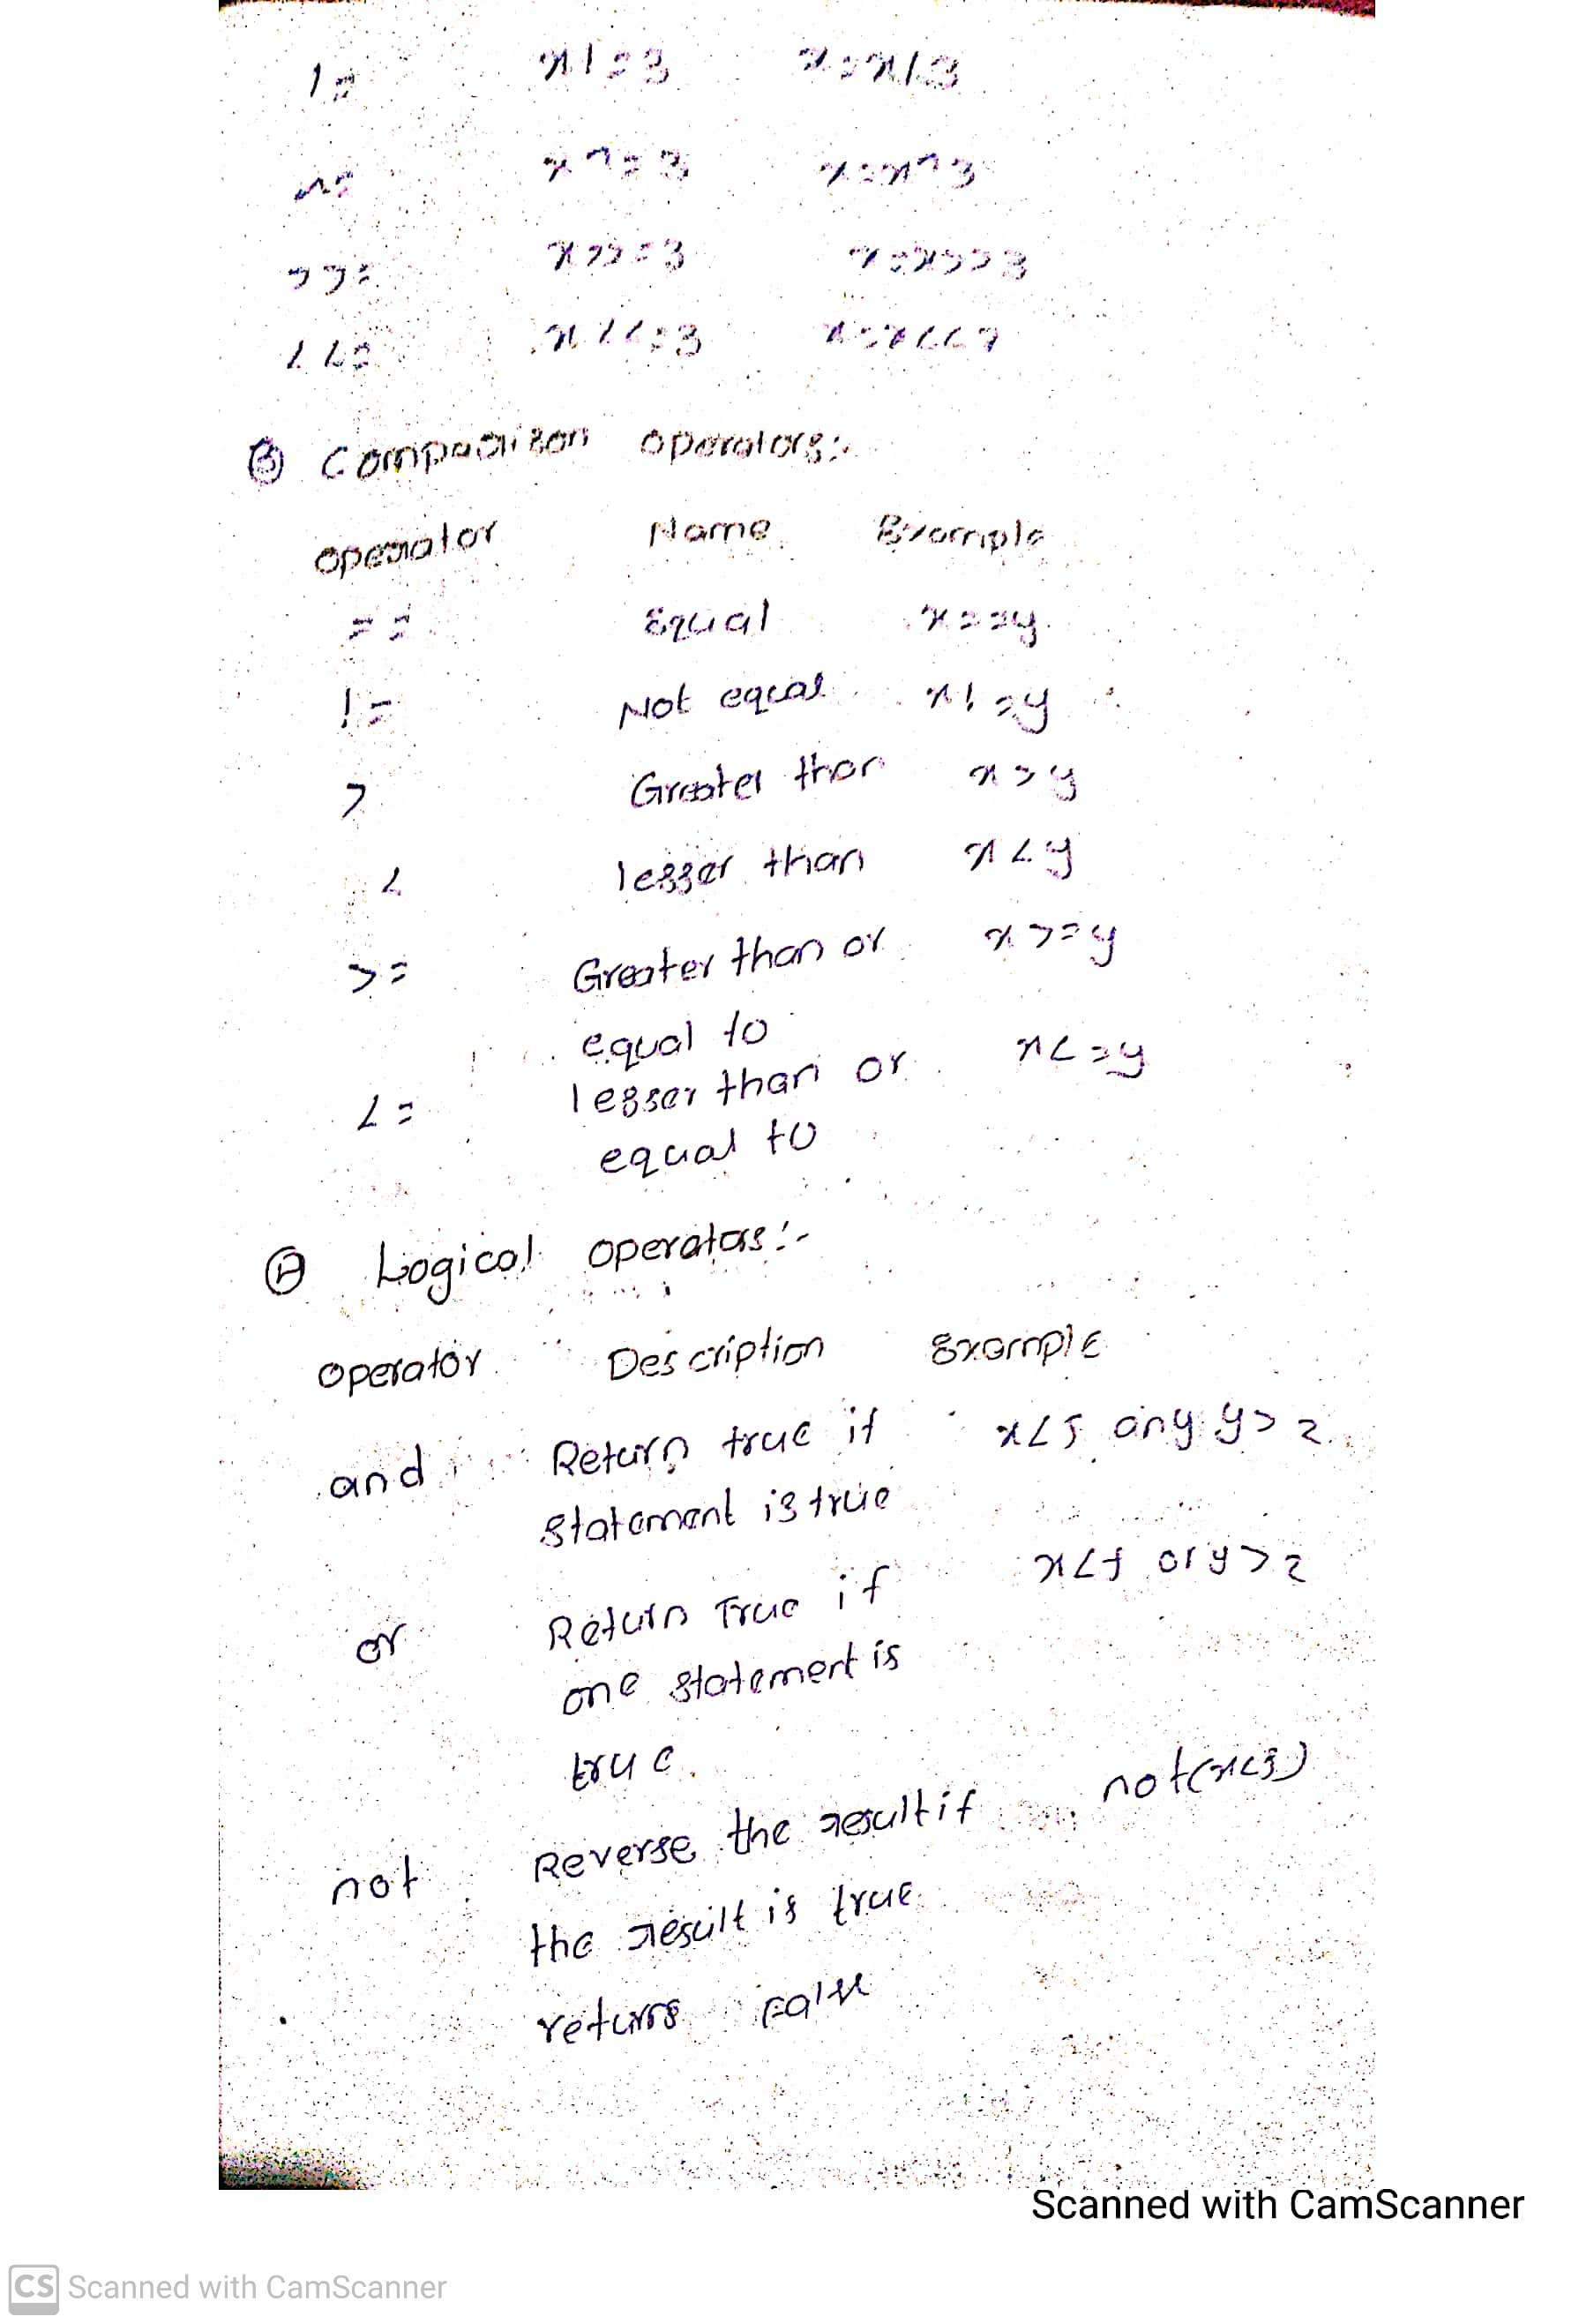 |= x|=3 x=x|3
^= x^=3 x=x^3
>>= x>>=3 x=x>>3
<<= x<<=3 x=x<<3
③ Comparison operators:-
operator Name Example
== Equal x==y
!= Not equal x!=y
> Greater than x>y
< lesser than x<y
>= Greater than or x>=y
equal to
<= lesser than or x<=y
equal to
④ Logical operators:-
operator Description Example
and Return true if x<5 any y>2
statement is true
or Return True if x<5 or y>2
one statement is
true.
not Reverse the result if not(x<3)
the result is true
returns False
Scanned with CamScanner
CS Scanned with CamScanner